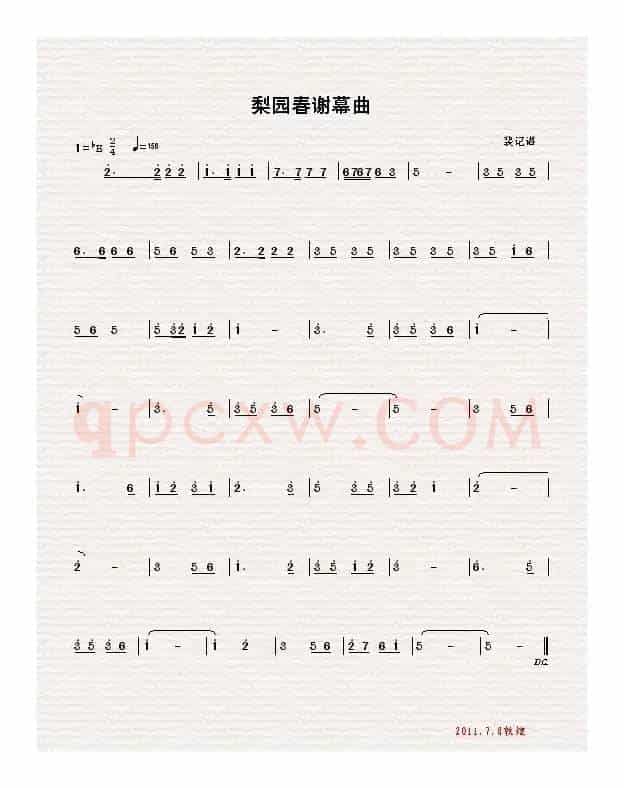 梨园春谢幕曲
1=♭E 2/4 ♩=150
裴记谱
2· 2 2 2 | 1· 1 1 1 | 7· 7 7 7 | 6767 6 3 | 5 - | 3 5 3 5 |
6· 6 6 6 | 5 6 5 3 | 2· 2 2 2 | 3 5 3 5 | 3 5 3 5 | 3 5 1 6 |
5 6 5 | 5 32 1 2 | 1 - | 3· 5 | 3 5 3 6 | 1 - |
1 - | 3· 5 | 3 5 3 6 | 5 - | 5 - | 3 5 6 |
qpcxw.COM
1· 6 | 1 2 3 1 | 2· 3 | 5 3 5 | 3 2 1 | 2 - |
2 - | 3 5 6 | 1· 2 | 3 5 1 2 | 3 - | 6· 5 |
3 5 3 6 | 1 - | 1 2 | 3 5 6 | 2 7 6 1 | 5 - | 5 - ‖
D.C.
2011.7.8敦煌